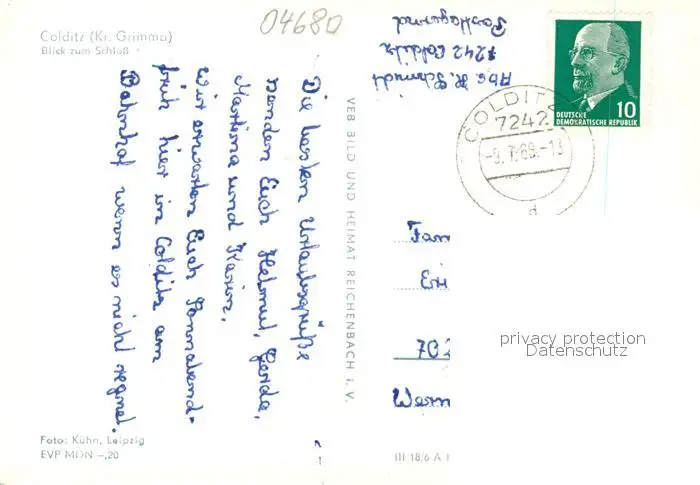 Colditz (Kr. Grimma)
Blick zum Schloß
04680
Die besten Urlaubsgrüße
senden Euch Helmut, Gerda,
Martina und Karin.
Wir erwarten Euch Sonnabend-
früh hier in Colditz am
Bahnhof wenn es nicht regnet.
Foto: Kühn, Leipzig
EVP MDN -,20
VEB BILD UND HEIMAT REICHENBACH i. V.
Abs. H. Schmidt
7242 Colditz
Postlagernd
COLDITZ
7242
-9.7.69.-13
d
10
DEUTSCHE
DEMOKRATISCHE REPUBLIK
Fam
Eri
702
Wern
privacy protection
Datenschutz
III 18/6 A 1